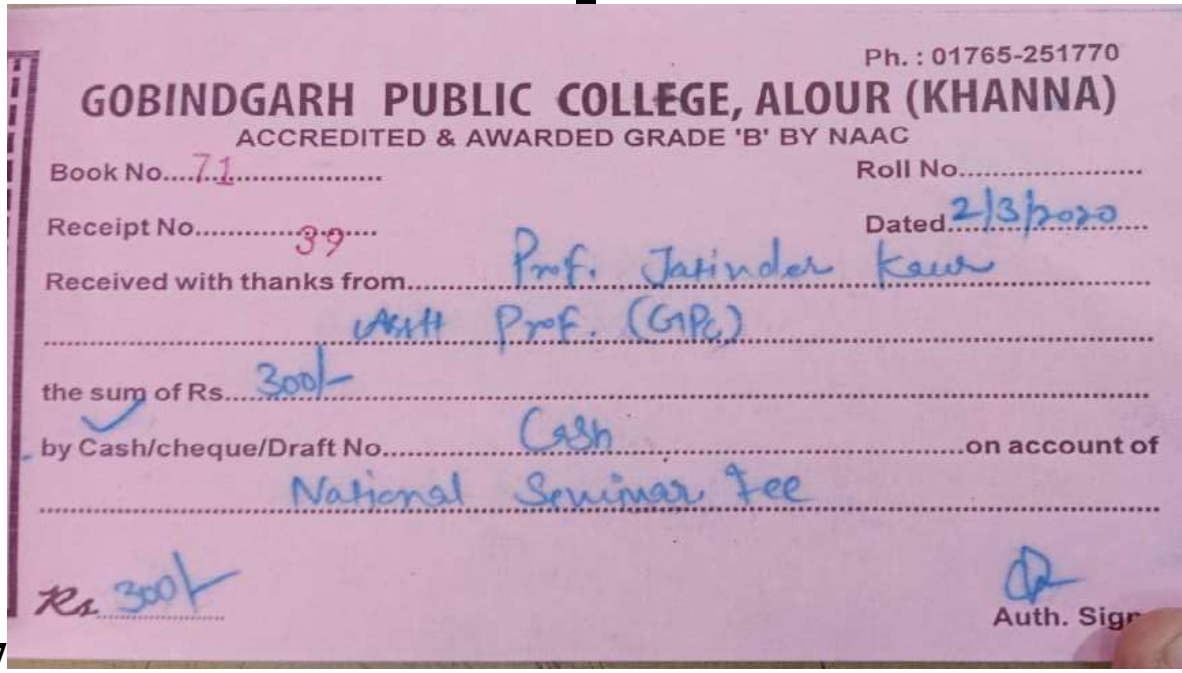 Ph. : 01765-251770
GOBINDGARH PUBLIC COLLEGE, ALOUR (KHANNA)
ACCREDITED & AWARDED GRADE 'B' BY NAAC
Book No....71................... Roll No.......................
Receipt No.............39.... Dated..2/3/2020
Received with thanks from.......... Prof. Jatinder Kaur
Asstt Prof. (GPC)
the sum of Rs....300/-
by Cash/cheque/Draft No............ Cash ............on account of
National Seminar Fee
Rs. 300/-
Auth. Sign